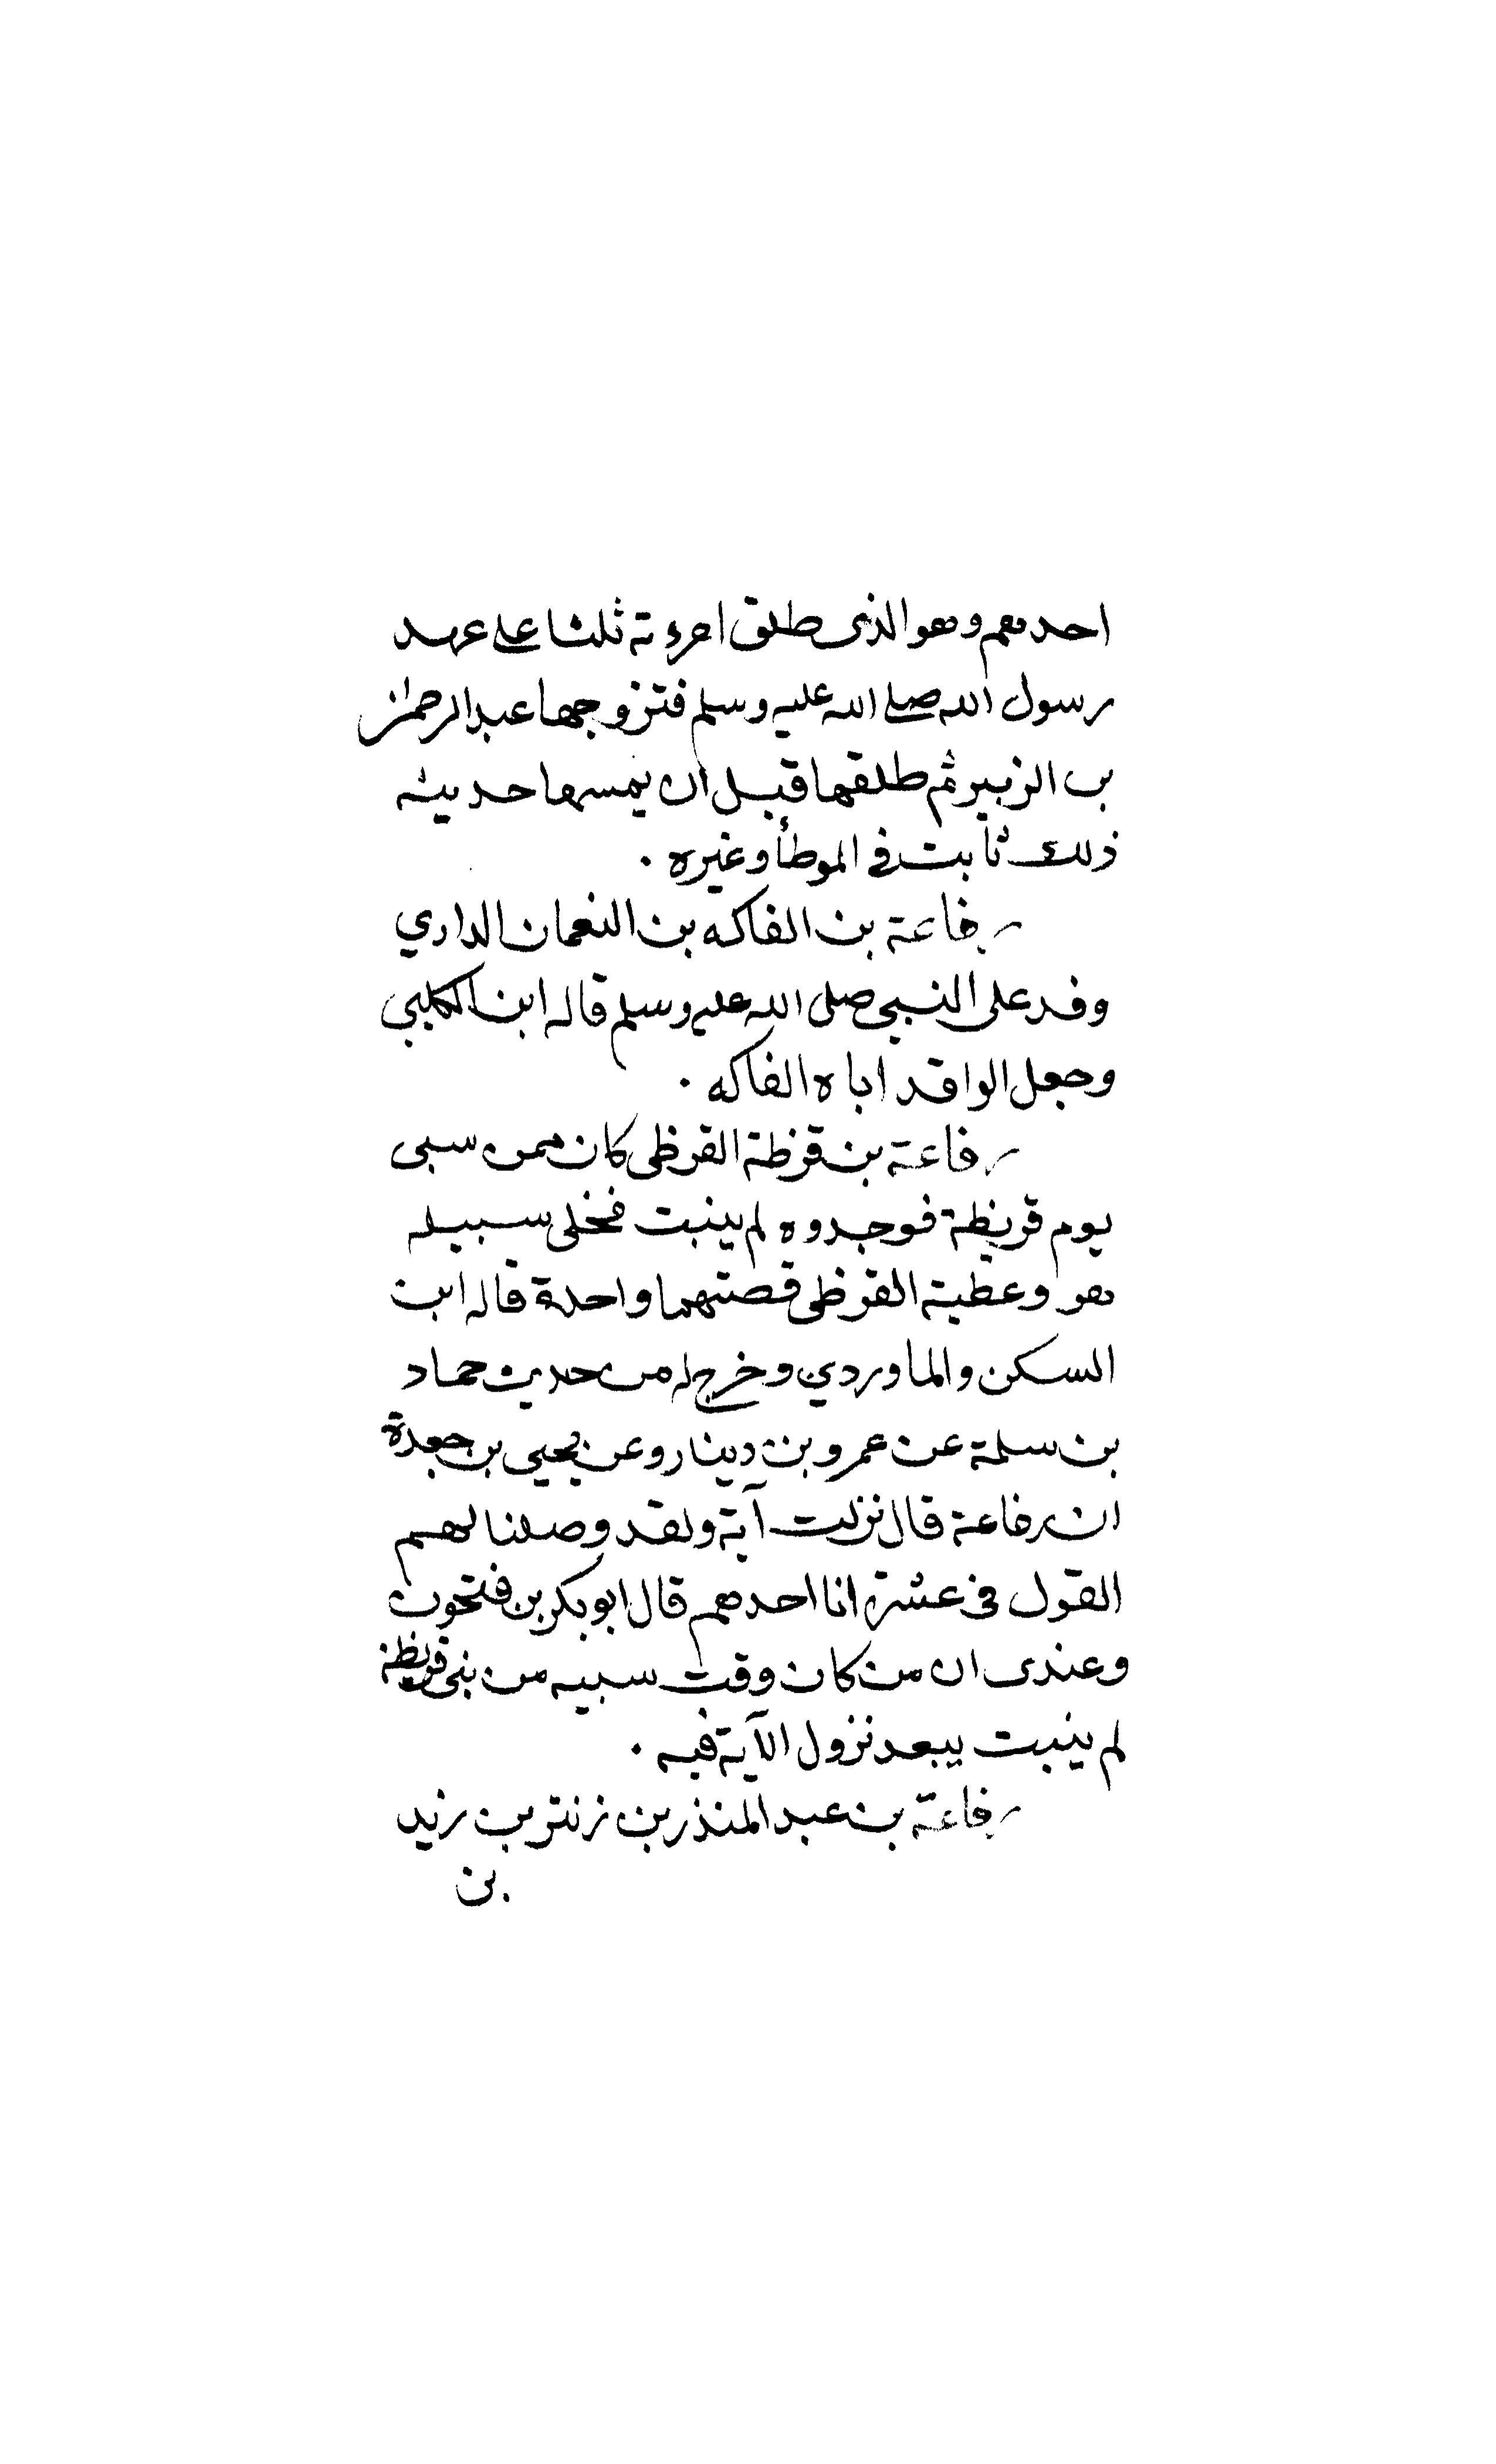 احدهم وهو الذى طلق امرءته ثلثا على عهد
رسول الله صلى الله عليه وسلم فتزوجها عبد الرحمن
بن الزبير ثم طلقها قبل ان يمسها حديث
ذلك ثابت في الموطأ وغيره .
رفاعة بن الفاكه بن النعمان الداري
وفد على النبي صلى الله عليه وسلم قاله ابن الكلبي
وجعل الواقد اباه الفاكه .
رفاعة بن قرظة القرظى كان ممن سبى
يوم قريظة فوجدوه لم ينبت فخلى سبيله
هو وعطية القرظى قصتهما واحدة قاله ابن
السكن والماوردي وخرج له من حديث حماد
بن سلمة عن عمرو بن دينار وعن يحيى بن جعدة
ان رفاعة قال نزلت آية ولقد وصلنا لهم
القول في عشرة انا احدهم قال ابو بكر بن فتحون
وعندى ان من كان وقت سبيه من بنى قريظة
لم ينبت يبعد نزول الآية فيه .
رفاعة بن عبد المنذر بن زنتر بن زيد
بن